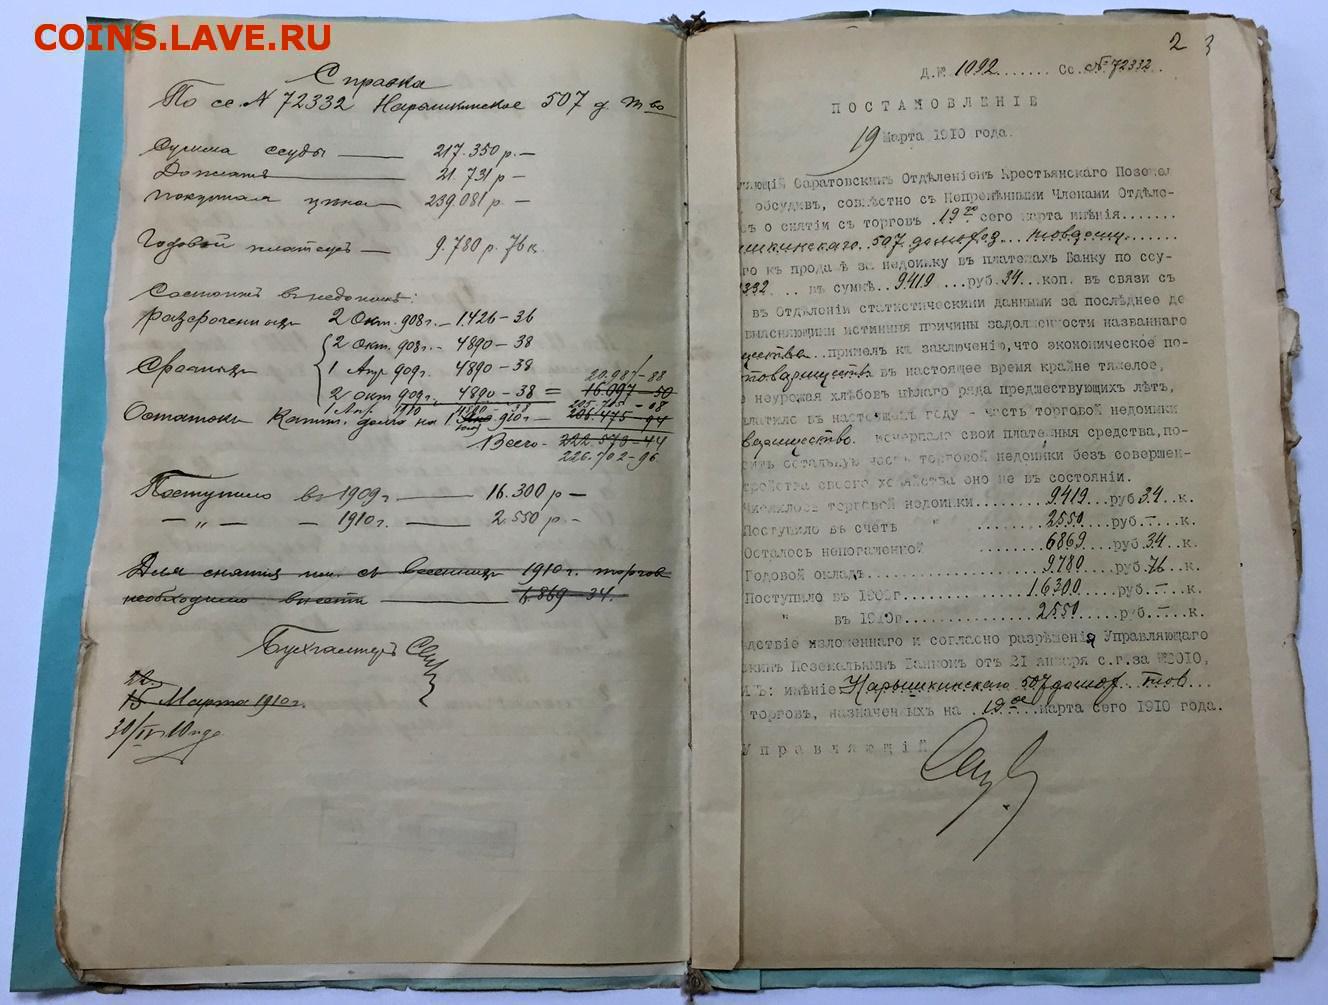 COINS.LAVE.RU
Справка
По сс. N 72332 Нарышкинское 507 д. т во
Сумма ссуды — 217.350 р. —
Доплата — 21.731 р —
покупная цѣна 239.081 р. —
Годовой платежъ — 9.780 р. 76 к.
Состоитъ въ недоимкѣ:
2 Окт. 908 г. — 1.426 - 36
2 Окт. 908 г. — 4890 - 38
Срочныхъ 1 Апр 909 г. 4890 - 38 20.987 - 88
2 окт 909 г. 4890 - 38 = 16.097 - 50
1 Апр. 1910 4890 38 205.715 - 08
Остатокъ Капит. долга на 1 910 г — 206.475 - 94
Всего - 222.573 - 44
226.702 - 96
Поступило въ 1909 г — 16.300 р —
— „ — — 1910 г. — 2.550 р —
Для снятія им. съ весеннихъ 1910 г. торгов
необходимо внести — 6.869 34.
Бухгалтеръ
15 Марта 1910 г.
30/IV 10 года
2 3
Д.№ 1092....... Сс. № 72332..
ПОСТАНОВЛЕНІЕ
19 Марта 1910 года.
ляющій Саратовскимъ Отдѣленіемъ Крестьянскаго Позем
обсудив, совмѣстно съ Непремѣнными Членами Отдѣле-
ъ о снятіи съ торговъ 19го сего марта имѣнія.......
шкинскаго 507 домохоз. товарищ.......
го къ продажѣ за недоимку въ платежахъ Банку по ссу-
332 ... въ суммѣ..9419....руб.34.коп. въ связи съ
въ Отдѣленіи статистическими данными за послѣднее де
выясняющими истинныя причины задолженности названнаго
щества..пришелъ къ заключенію, что экономическое по-
товарищества въ настоящее время крайне тяжелое,
е неурожая хлѣбовъ цѣлаго ряда предшествующихъ лѣтъ,
латило въ настоящемъ году - часть торговой недоимки
варищество. исчерпало свои платежныя средства, по-
сить остальную часть торговой недоимки безъ совершен-
тройства своего хозяйства оно не въ состояніи.
Числилось торговой недоимки........9419....руб 34.. к.
Поступило въ счетъ " ........2550....руб.—... к.
Осталось непогашенной ........6869....руб.34.. к.
Годовой окладъ........9780....руб.76.. к.
Поступило въ 1909г........16300....руб.—.. к.
" въ 1910г........2550....руб.—.. к.
дствіе изложеннаго и согласно разрѣшенія Управляющаго
скимъ Поземельнымъ Банкомъ отъ 21 января с.г.за №2010,
Л.Ъ: имѣніе Нарышкинскаго 507 домох. тов
торговъ, назначенныхъ на .19ое....марта сего 1910 года.
Управляющій